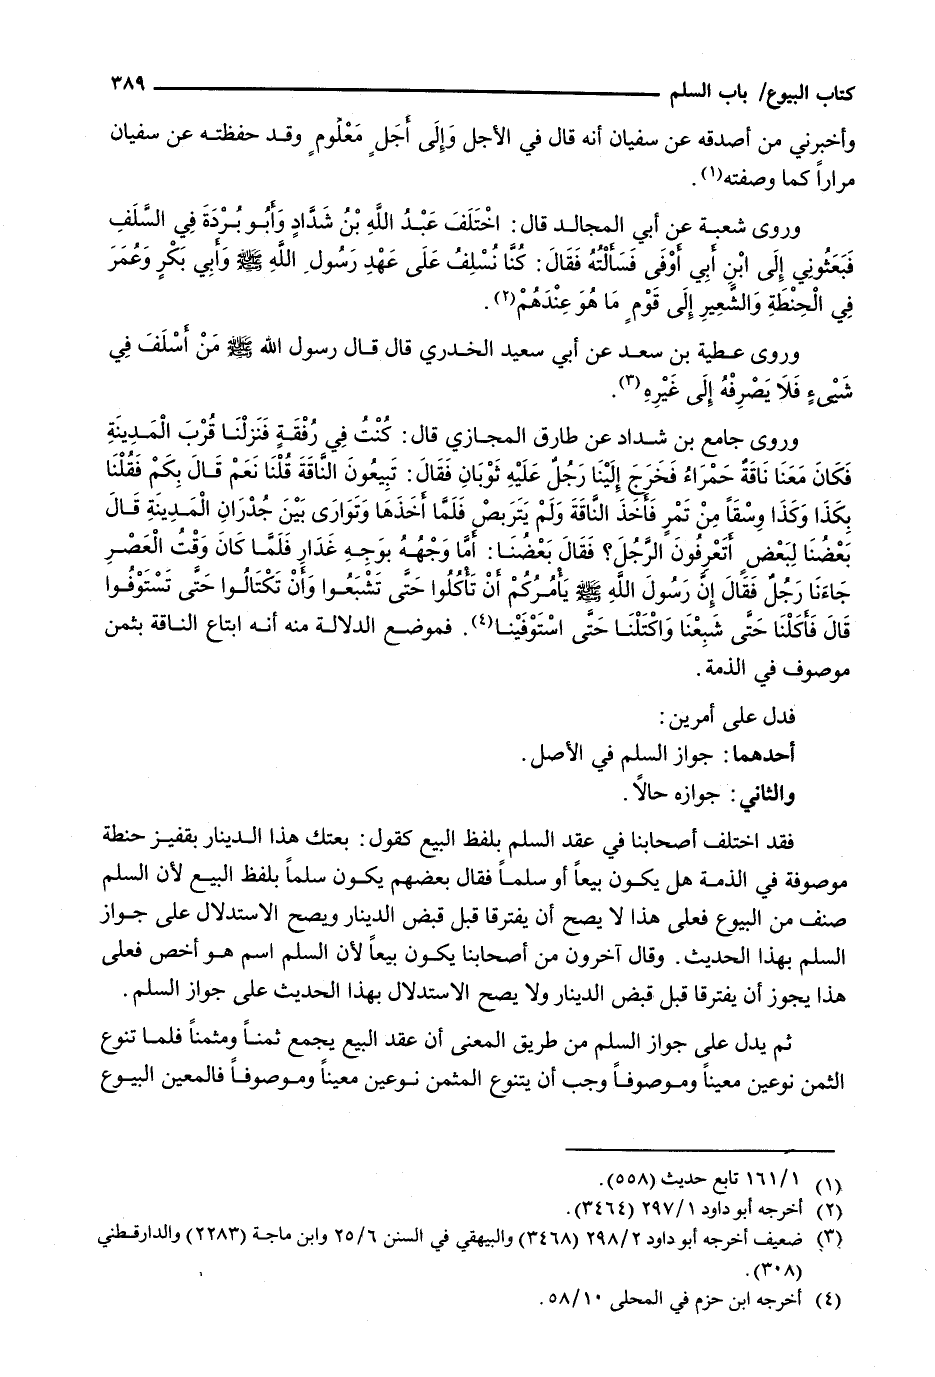 كتاب البيوع/ باب السلم ٣٨٩
وأخبرني من أصدقه عن سفيان أنه قال في الأجل وَإِلَى أَجَلٍ مَعْلُومٍ وقد حفظته عن سفيان
مراراً كما وصفته(١).
وروى شعبة عن أبي المجالد قال: اخْتَلَفَ عَبْدُ اللَّهِ بْنُ شَدَّادٍ وَأَبُو بُرْدَةَ فِي السَّلَفِ
فَبَعَثُونِي إِلَى ابْنِ أَبِي أَوْفَى فَسَأَلْتُهُ فَقَالَ: كُنَّا نُسْلِفُ عَلَى عَهْدِ رَسُولِ اللَّهِ ﷺ وَأَبِي بَكْرٍ وَعُمَرَ
فِي الْحِنْطَةِ وَالشَّعِيرِ إِلَى قَوْمٍ مَا هُوَ عِنْدَهُمْ(٢).
وروى عطية بن سعد عن أبي سعيد الخدري قال قال رسول الله ﷺ مَنْ أَسْلَفَ فِي
شَيْءٍ فَلَا يَصْرِفْهُ إِلَى غَيْرِهِ(٣).
وروى جامع بن شداد عن طارق المجازي قال: كُنْتُ فِي رُفْقَةٍ فَنَزَلْنَا قُرْبَ الْمَدِينَةِ
فَكَانَ مَعَنَا نَاقَةٌ حَمْرَاءُ فَخَرَجَ إِلَيْنَا رَجُلٌ عَلَيْهِ ثَوْبَانِ فَقَالَ: تَبِيعُونَ النَّاقَةَ قُلْنَا نَعَمْ قَالَ بِكَمْ فَقُلْنَا
بِكَذَا وَكَذَا وِسْقَاً مِنْ تَمْرٍ فَأَخَذَ النَّاقَةَ وَلَمْ يَتَرَبص فَلَمَّا أَخَذَهَا وَتَوَارَى بَيْنَ جُدْرَانِ الْمَدِينَةِ قَالَ
بَعْضُنَا لِبَعْضٍ أَتَعْرِفُونَ الرَّجُلَ؟ فَقَالَ بَعْضُنَا: أَمَّا وَجْهُهُ بِوَجِهِ غَدَارِ فَلَمَّا كَانَ وَقْتُ الْعَصْرِ
جَاءَنَا رَجُلٌ فَقَالَ إِنَّ رَسُولَ اللَّهِ ﷺ يَأْمُرُكُمْ أَنْ تَأْكُلُوا حَتَّى تَشْبَعُوا وَأَنْ تَكْتَالُوا حَتَّى تَسْتَوْفُوا
قَالَ فَأَكَلْنَا حَتَّى شَبِعْنَا وَاكْتَلْنَا حَتَّى اسْتَوْفَيْنا(٤). فموضع الدلالة منه أنه ابتاع الناقة بثمن
موصوف في الذمة.
فدل على أمرين:
أحدهما: جواز السلم في الأصل.
والثاني: جوازه حالاً.
فقد اختلف أصحابنا في عقد السلم بلفظ البيع كقول: بعتك هذا الدينار بقفيز حنطة
موصوفة في الذمة هل يكون بيعاً أو سلماً فقال بعضهم يكون سلماً بلفظ البيع لأن السلم
صنف من البيوع فعلى هذا لا يصح أن يفترقا قبل قبض الدينار ويصح الاستدلال على جواز
السلم بهذا الحديث. وقال آخرون من أصحابنا يكون بيعاً لأن السلم اسم هو أخص فعلى
هذا يجوز أن يفترقا قبل قبض الدينار ولا يصح الاستدلال بهذا الحديث على جواز السلم.
ثم يدل على جواز السلم من طريق المعنى أن عقد البيع يجمع ثمناً ومثمناً فلما تنوع
الثمن نوعين معيناً وموصوفاً وجب أن يتنوع المثمن نوعين معيناً وموصوفاً فالمعين البيوع
(١) ١٦١/١ تابع حديث (٥٥٨).
(٢) أخرجه أبو داود ٢٩٧/١ (٣٤٦٤).
(٣) ضعيف أخرجه أبو داود ٢٩٨/٢ (٣٤٦٨) والبيهقي في السنن ٢٥/٦ وابن ماجة (٢٢٨٣) والدارقطني
(٣٠٨).
(٤) أخرجه ابن حزم في المحلى ٥٨/١٠.